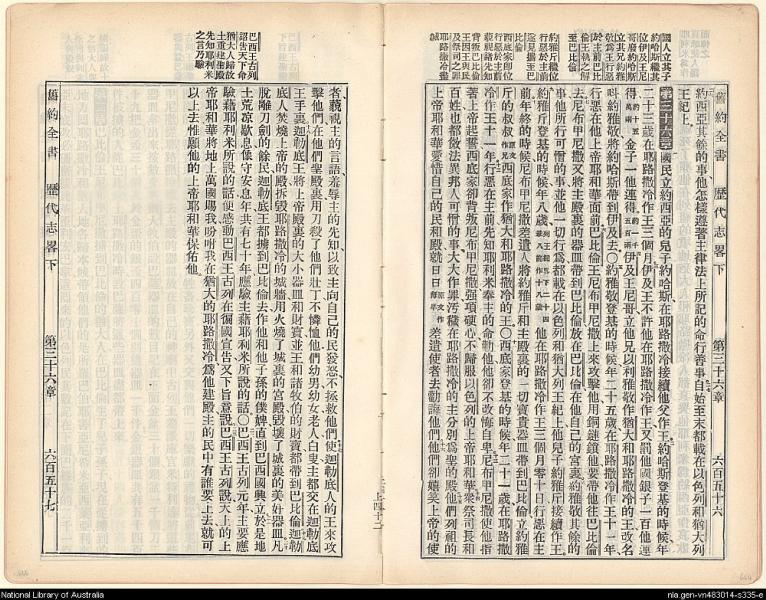 舊約全書 歷代志畧下 第三十六章 六百五十六
約西亞其餘的事他怎樣遵著主律法上所記的命行善事自始至末都載在以色列和猶大列
王紀上
第三十六章 國民立約西亞的兒子約哈斯在耶路撒冷接續他父作王約哈斯登基的時候年
二十三歲在耶路撒冷作王三個月伊及王不許他在耶路撒冷作王又罰他國銀子一百他連
得約十五萬兩金子一他連得約一千五百兩伊及王尼哥立他兄以利雅敬作猶大和耶路撒冷的王改名
叫約雅敬將約哈斯帶到伊及去〇約雅敬登基的時候年二十五歲在耶路撒冷作王十一年
行惡在他上帝耶和華面前巴比倫王尼布甲尼撒上來攻擊他用銅鏈鎖他要帶他往巴比倫
去尼布甲尼撒又將主殿裏的器皿帶到巴比倫放在巴比倫在他自己的宮裏約雅敬其餘的
事他所行可憎的事並他一切行爲都載在以色列和猶大列王紀上他兒子約雅斤接續作王
約雅斤登基的時候年八歲他在耶路撒冷作王三個月零十日行惡在主
前年終的時候尼布甲尼撒差遣人將約雅斤和主殿裏的一切寶貴器皿帶到巴比倫立約雅
斤的叔叔西底家作猶大和耶路撒冷的王〇西底家登基的時候年二十一歲在耶路撒
冷作王十一年行惡在主前先知耶利米奉主的命勸他他卻不改悔自卑尼布甲尼撒使他指
著上帝起誓西底家卻背叛尼布甲尼撒强項硬心不歸服以色列的上帝耶和華衆祭司長和
百姓也都傚法異邦人可憎的事大大作罪汚穢在耶路撒冷的主分別爲聖的殿他們列祖的
上帝耶和華愛惜自己的民和殿就日日原文作每早差遣使者去勸誨他們他們卻嬉笑上帝的使
國人立其子
約哈斯繼其
位伊及王尼
哥廢約哈斯
立其兄約雅
敬爲王行惡
於主前巴比
倫王執之解
至巴比倫
約雅斤繼位
行惡於主前
遂見擄至巴
比倫
西底家即位
行惡於主前
藐視諸先知
背叛巴比倫
王因王與民
及祭司之罪
耶路撒冷
者藐視主的言語羞辱主的先知以致主向自己的民發怒不拯救他們使迦勒底人的王來攻
擊他們在他們聖殿裏用刀殺了他們壯丁不憐恤他們幼男幼女老人白叟主都交在迦勒底
王手裏迦勒底王將上帝殿裏的大小器皿和財寶並王和諸牧伯的財寶都帶到巴比倫迦勒
底人焚燒上帝的殿拆毀耶路撒冷的城牆用火燒了城裏的宮殿毀壞了城裏的美好器皿凡
脫離刀劍的餘民迦勒底王都擄到巴比倫去作他和他子孫的僕婢直到巴西國興立於是地
土荒凉歇息像守安息年共有七十年應驗主藉耶利米所說的話〇巴西王古列元年主要應
驗藉耶利米所說的話感動巴西王古列在徧國宣告又下旨意說巴西王古列說天上的上
帝耶和華將地上萬國賜我吩咐我在猶大的耶路撒冷爲他建殿主的民中有誰要上去就可
以上去惟願他的上帝耶和華保佑他
巴西王古列
詔告天下命
猶大人歸故
土重建主殿
先知耶利米
之言乃驗
舊約全書 歷代志畧下 第三十六章 六百五十七
National Library of Australia
nla.gen-vn483014-s335-e